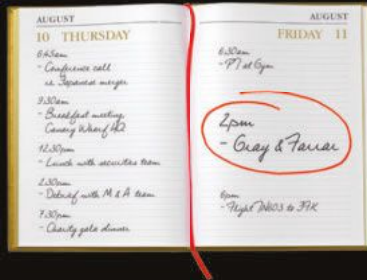 AUGUST
10 THURSDAY
6:45am
- Conference call
re Japanese merger
9:30am
- Breakfast meeting,
Canary Wharf HQ
12:30pm
- Lunch with securities team
2:30pm
- Debrief with M & A team
7:30pm
- Charity gala dinner
AUGUST
FRIDAY 11
6:30am
- PT at Gym
2pm
- Gray & Farrar
6pm
- Flight to JFK